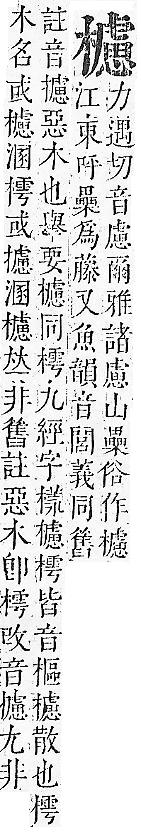 櫖
力遇切音慮爾雅諸慮山櫐俗作櫖
江東呼櫐為藤又魚韻音閭義同舊
註音攄惡木也舉要櫖同樗九經字㨾櫖樗皆音樞櫖散也樗
木名或櫖溷樗或攄溷櫖𠀤非舊註惡木卽樗改音攄尤非